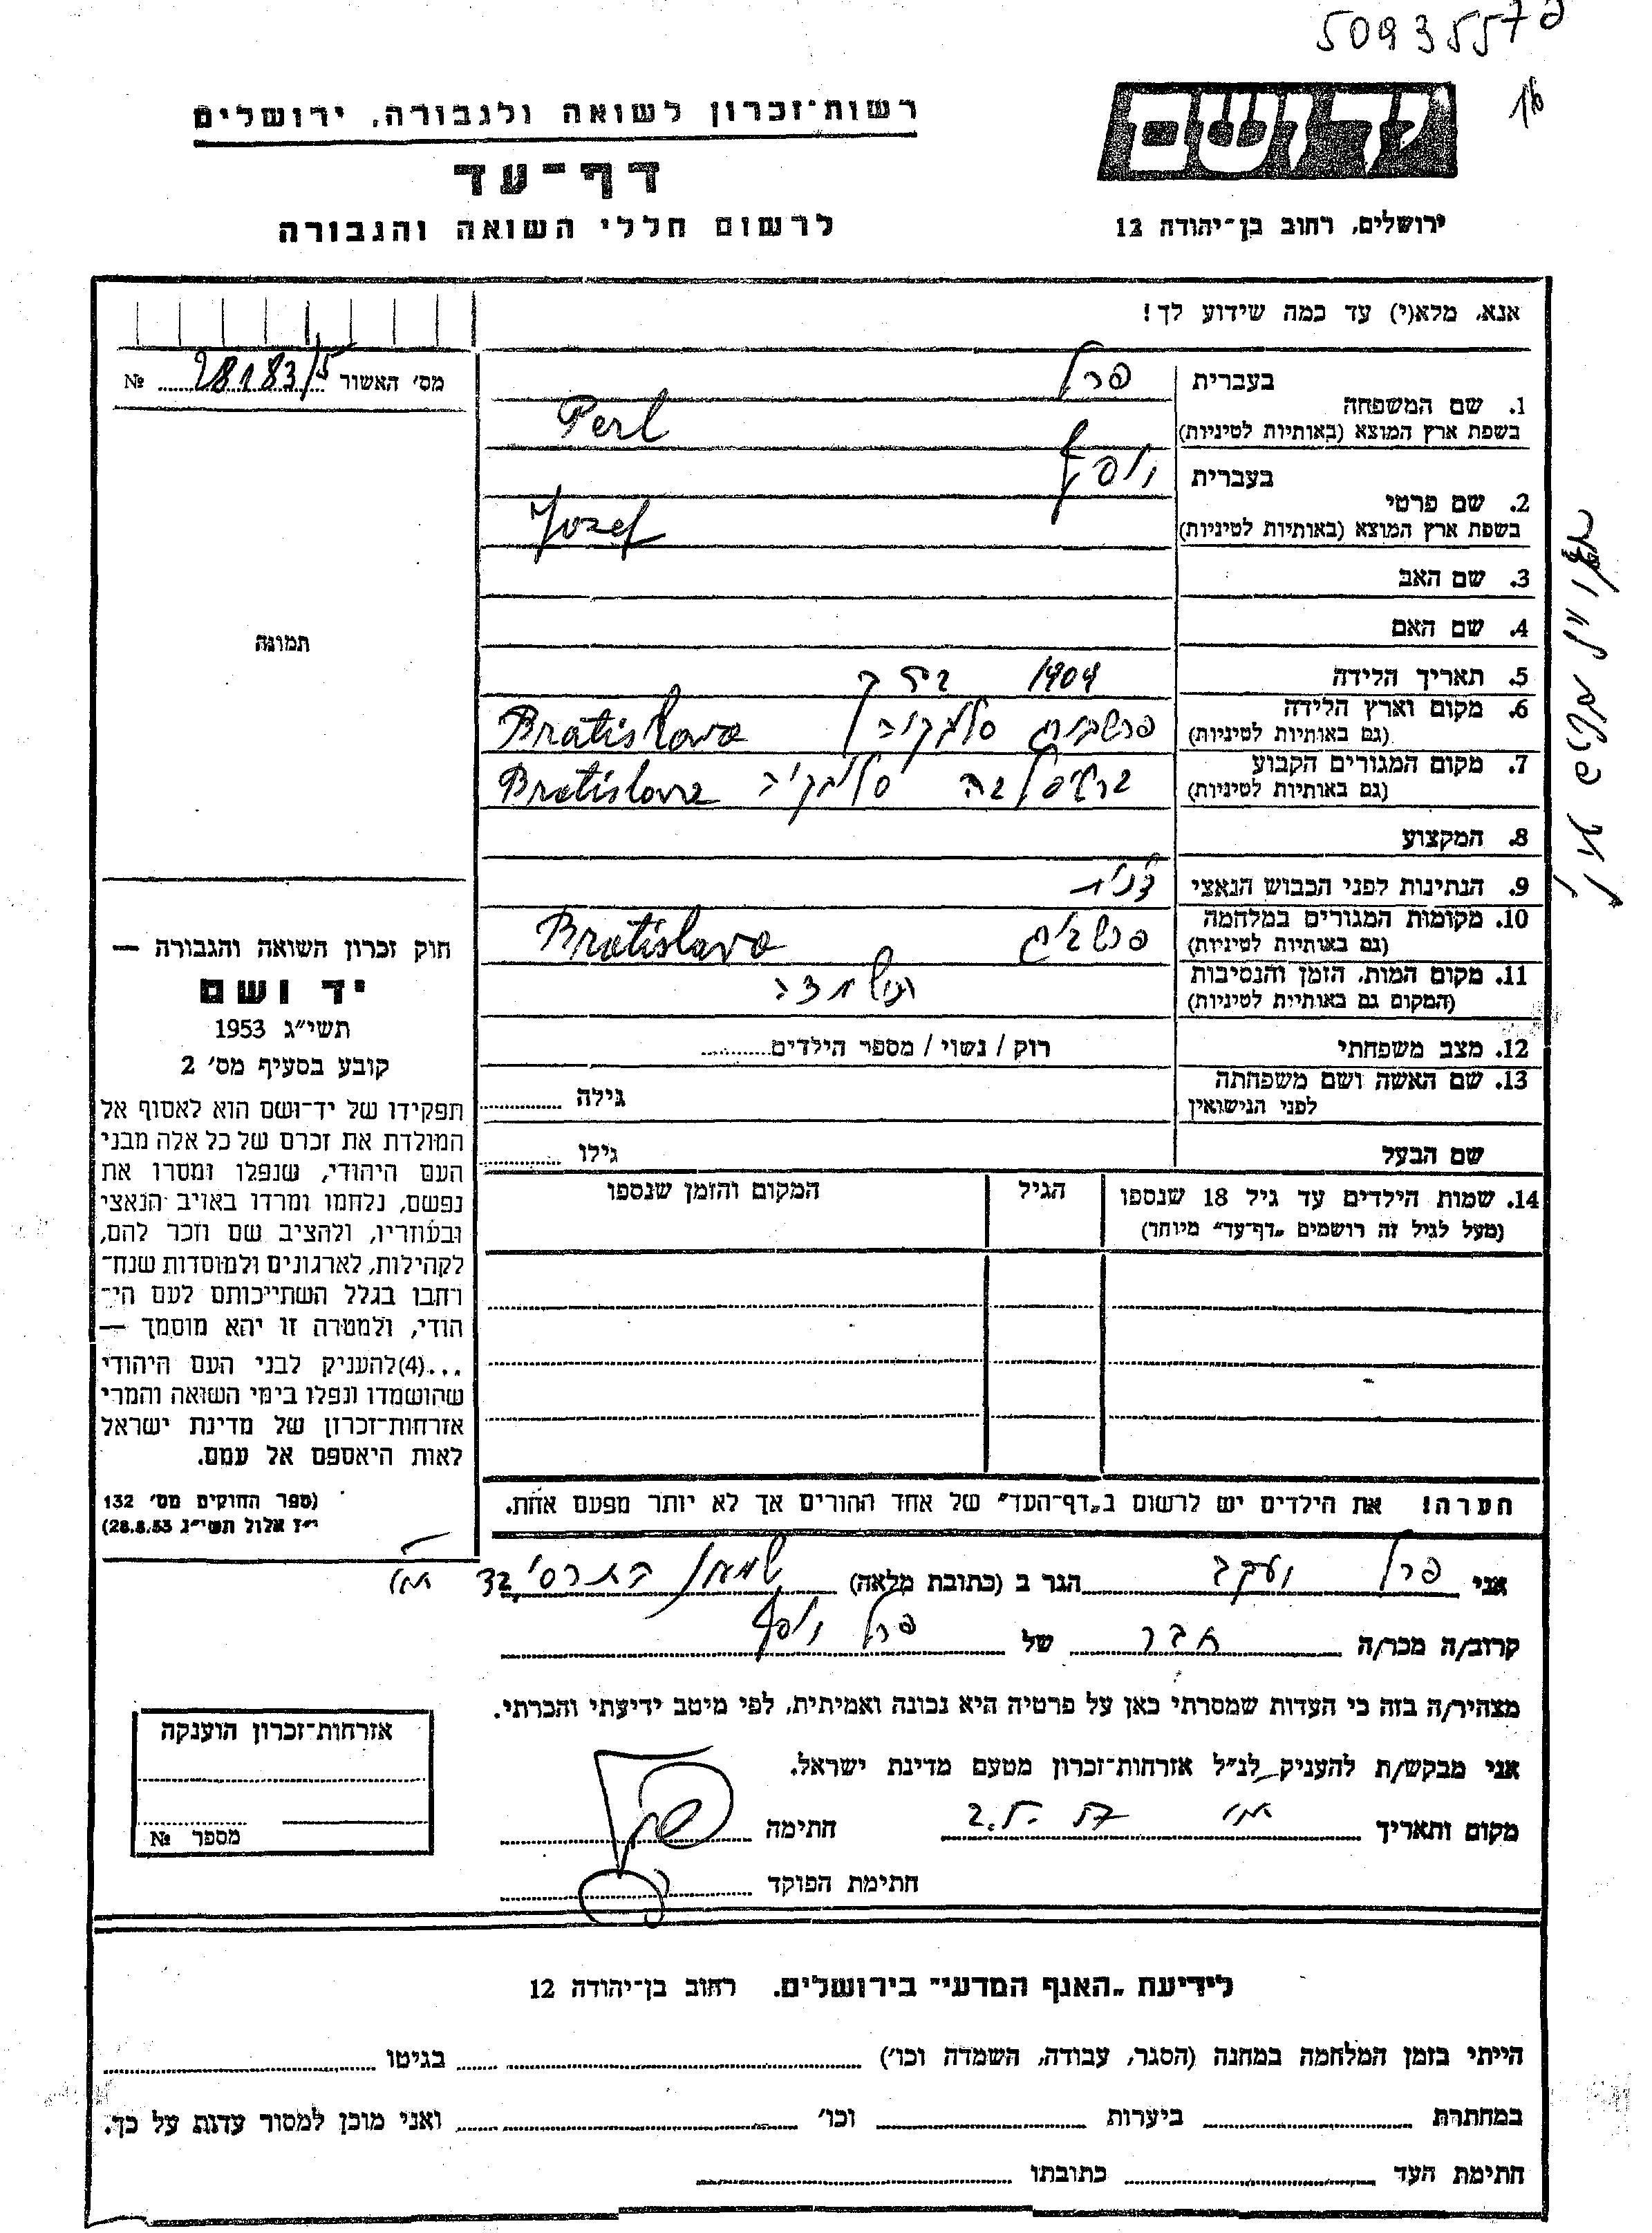 50935570
16
רשות־זכרון לשואה ולגבורה, ירושלים
דף־עד
לרשום חללי השואה והגבורה
יד ושם
ירושלים, רחוב בן־יהודה 12
אנא, מלא(י) עד כמה שידוע לך!
מס׳ האשור № 28183/5
תמונה
בעברית פרל
1. שם המשפחה
בשפת ארץ המוצא (באותיות לטיניות) Perl
בעברית יוסף
2. שם פרטי
בשפת ארץ המוצא (באותיות לטיניות) Jozef
3. שם האב
4. שם האם
5. תאריך הלידה 1904
6. מקום וארץ הלידה
(גם באותיות לטיניות) פרשבורג סלובקיה Bratislava
7. מקום המגורים הקבוע
(גם באותיות לטיניות) ברטיסלבה סלובקיה Bratislava
8. המקצוע
9. הנתינות לפני הכבוש הנאצי
10. מקומות המגורים במלחמה
(גם באותיות לטיניות) פרשבורג Bratislava
11. מקום המות, הזמן והנסיבות
(המקום גם באותיות לטיניות)
12. מצב משפחתי רוק / נשוי / מספר הילדים
13. שם האשה ושם משפחתה
לפני הנישואין גילה
שם הבעל גילו
14. שמות הילדים עד גיל 18 שנספו הגיל המקום והזמן שנספו
(מעל לגיל זה רושמים „דף־עד” מיוחד)
הערה! את הילדים יש לרשום ב„דף־העד” של אחד ההורים אך לא יותר מפעם אחת.
חוק זכרון השואה והגבורה —
יד ושם
תשי״ג 1953
קובע בסעיף מס׳ 2
תפקידו של יד־ושם הוא לאסוף אל
המולדת את זכרם של כל אלה מבני
העם היהודי, שנפלו ומסרו את
נפשם, נלחמו ומרדו באויב הנאצי
ובעוזריו, ולהציב שם וזכר להם,
לקהילות, לארגונים ולמוסדות שנח־
רחבו בגלל השתייכותם לעם הי־
הודי, ולמטרה זו יהא מוסמך —
...(4)להעניק לבני העם היהודי
שהושמדו ונפלו בימי השואה והמרי
אזרחות־זכרון של מדינת ישראל
לאות היאספם אל עמם.
(ספר החוקים מס׳ 132
י״ז אלול תשי״ג 28.8.53)
אני פרל יעקב הגר ב (כתובת מלאה)
קרוב/ה מכר/ה חבר של פרל יוסף
מצהיר/ה בזה כי העדות שמסרתי כאן על פרטיה היא נכונה ואמיתית, לפי מיטב ידיעתי והכרתי.
אני מבקש/ת להעניק לנ״ל אזרחות־זכרון מטעם מדינת ישראל.
מקום ותאריך חתימה
חתימת הפוקד
אזרחות־זכרון הוענקה
מספר №
לידיעת „האנף המדעי” בירושלים. רחוב בן־יהודה 12
הייתי בזמן המלחמה במחנה (הסגר, עבודה, השמדה וכו׳) בגיטו
במחתרת ביערות וכו׳ ואני מוכן למסור עדות על כך.
חתימת העד כתובתו